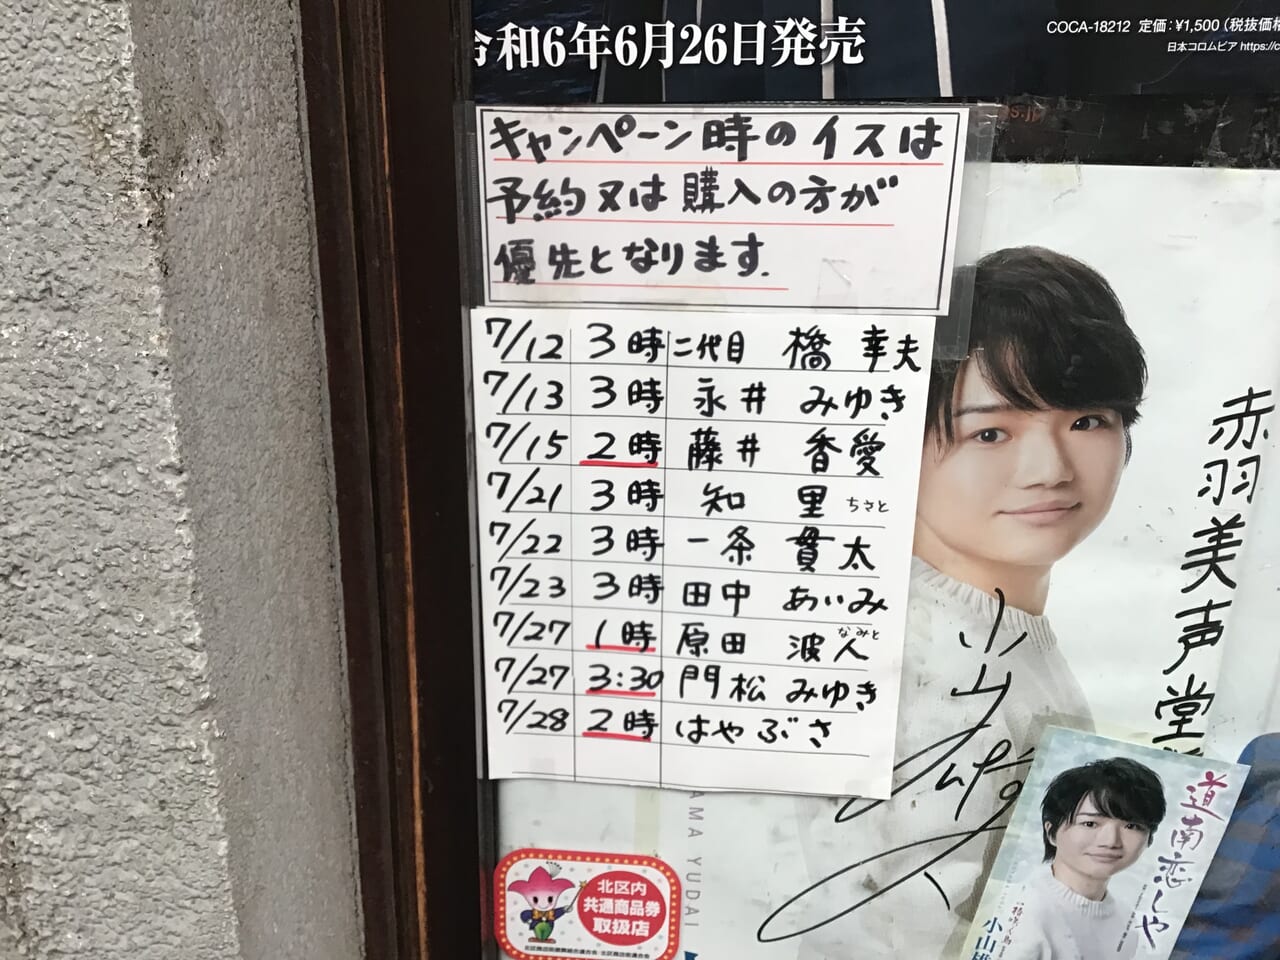 令和6年6月26日発売
COCA-18212 定価:¥1,500(税抜価格
日本コロムビア https://c
キャンペーン時のイスは
予約又は購入の方が
優先となります.
7/12 3時 二代目 橋 幸夫
7/13 3時 永井 みゆき
7/15 2時 藤井 香愛
7/21 3時 知里 ちさと
7/22 3時 一条 貫太
7/23 3時 田中 あいみ
7/27 1時 原田 波人 なみと
7/27 3:30 門松 みゆき
7/28 2時 はやぶさ
赤羽美声堂
AMA YUDAI
道南恋しや
小山雄
北区内
共通商品券
取扱店